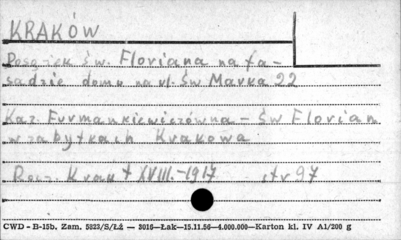 KRAKÓW
Posążek Św. Floriana na fa-
sadzie domu na ul. Św Marka 22
Kaz. Furmankiewiczówna - Św Florian
w zabytkach Krakowa
Rocz. Krak t XVIII.-1917 str 97
CWD - B-15b. Zam. 5823/S/Łź — 3016—Łak—15.11.56—4.000.000—Karton kl. IV A1/200 g